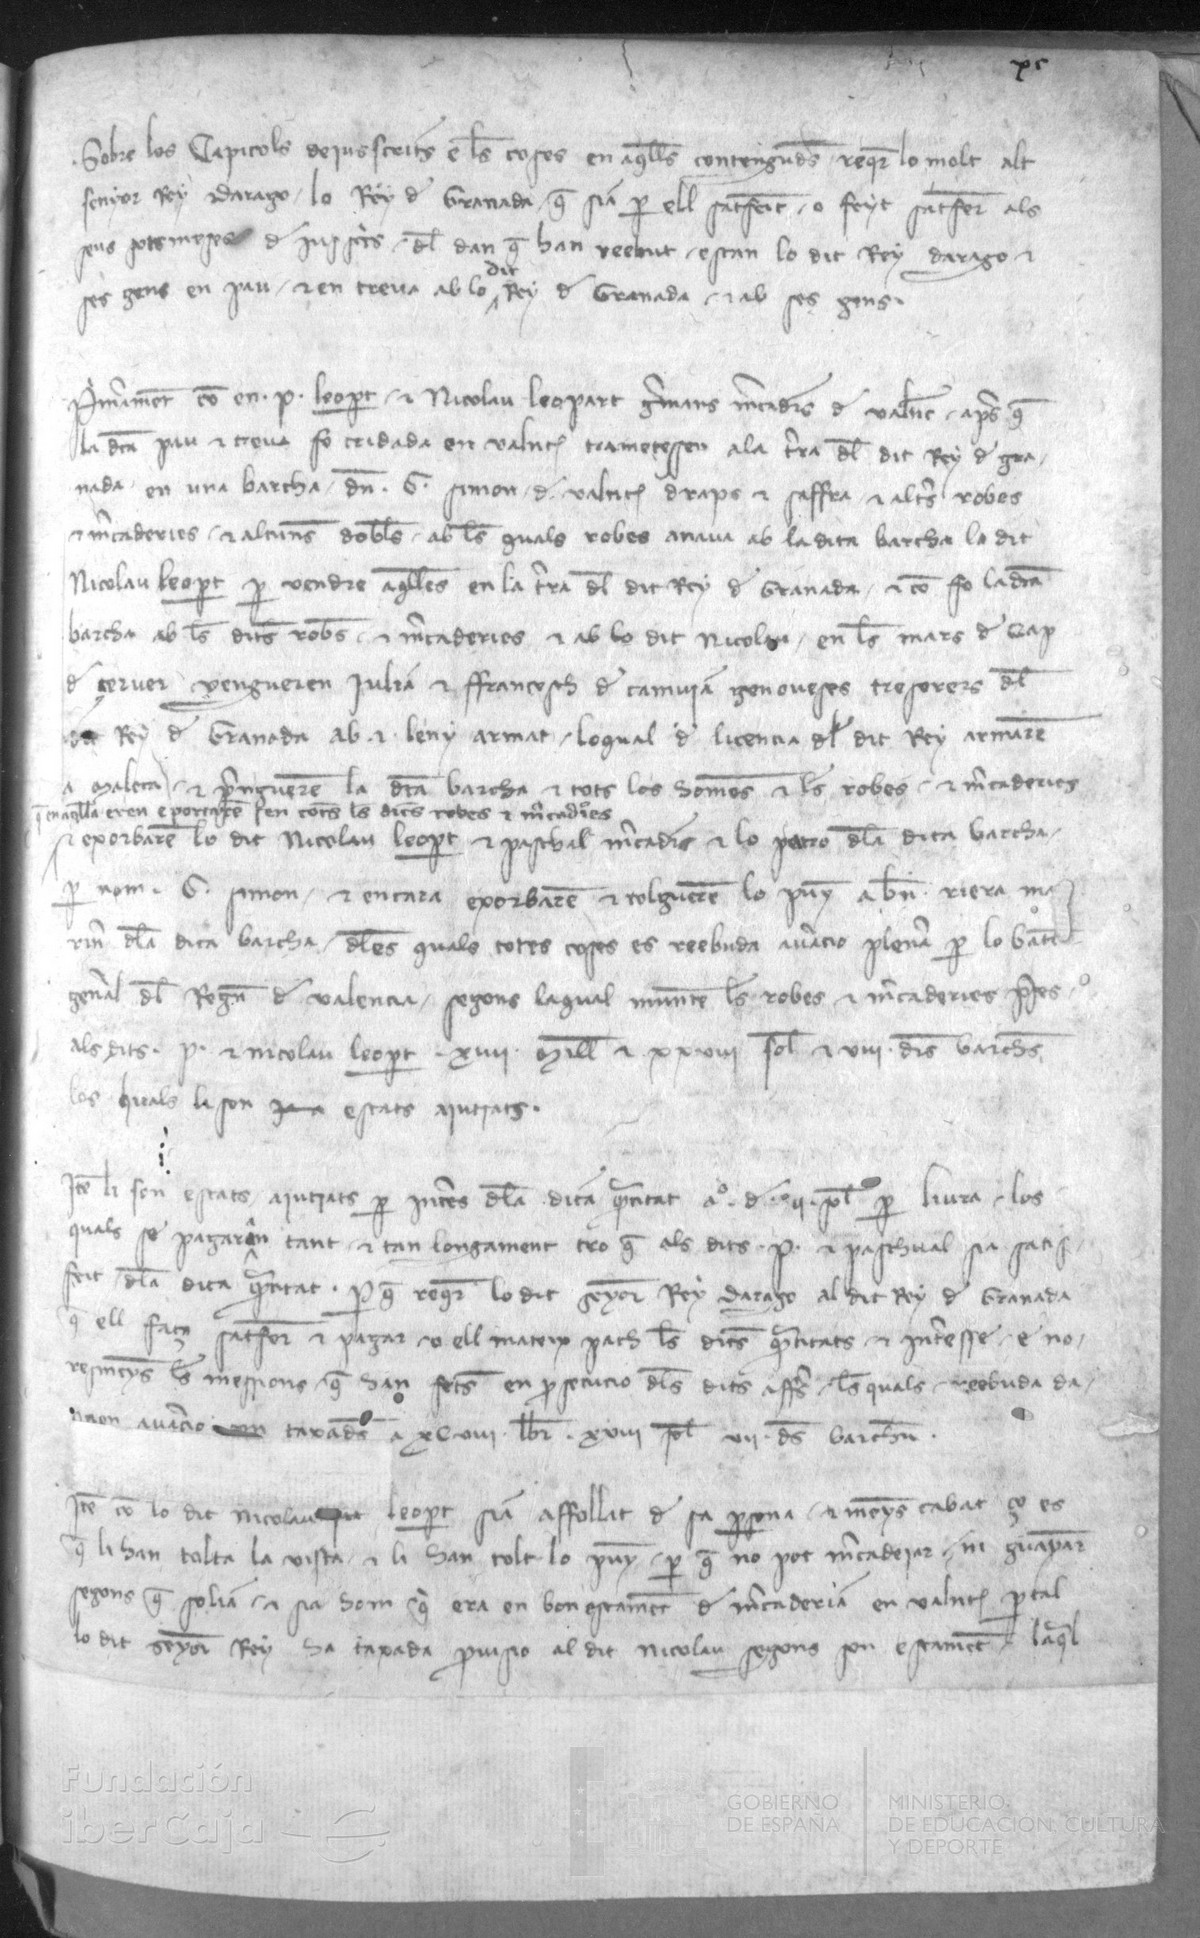 xc
Sobre los Capitols dejus scrits e les coses en aqlls contengudes reqr lo molt alt
senyor Rey Darago lo Rey de Granada q sia p ell satsfeit o feyt satsfer als
seus sotsmeses de jus scrits dl dan q han reebut estan lo dit Rey darago &
ses gens en pau & en treva ab lo dit Rey de Granada & ab ses gens.
Primament co en P. leopt & Nicolau leopart gmans mcaders de valnc aps q
la dta pau & treva fo cridada en valnc trametessen a la tra dl dit Rey de gra
nada en una barcha dn G. simon de valnc draps & saffra & altrs robes
& mcaderies & alcuns dobles ab ls quals robes anava ab la dita barcha lo dit
Nicolau leopt p vendre aqlles en la tra dl dit Rey de Granada & co fo la dta
barcha ab ls dits robs & mcaderies & ab lo dit Nicolau en ls mars de Cap
de cerver vengueren Julia & ffrancesch de camuja genoveses tresorers dl
dit Rey de Granada ab .i. leny armat loqual de licencia dl dit Rey armaren
a Maleca & prengueren la dta barcha & tots los homes & ls robes & mcaderies
q en aqlla eren e portaresen tots ls dits robes & mcadies
& exorbaren lo dit Nicolau leopt & paschal mcader & lo patro dla dita barcha
p nom G. simon & encara exorbaren & tolgueren lo puny a bn riera ma
rin dla dita barcha dles quals totes coses es reebuda averacio plena p lo batle
genal dl Regne de valencia segons laqual munten ls robes & mcaderies pses
als dits P. & nicolau leopt xiiii Mill & xxviii sol & viii drs barchs
los quals li son estats ajutjats.
Ite li son estats ajutjats p intes dla dita qtitat a ço de ii sol p liura los
quals se pagaran tant & tan longament tro q als dits P. & paschual sia satis
feit dla dita qtitat. P q reqr lo dit senyor Rey Darago al dit Rey de Granada
q ell faça satsfer & pagar o ell mateix pach ls dits qtitats & interesse e no
resmenys ls messions q han fets en psecucio dls dits affrs ls quals reebuda da
queen averacio taxades a xcviii lbr xviii sol vii drs barchn.
Ite co lo dit Nicolau leopt sia affollat de sa psona & menyscabat ço es
q li han tolta la vista & li han tolt lo puny p q no pot mcadejar ni guanyar
segons q solia & sia hom q era en bon estament de mcaderia en valnc p tal
lo dit senyor Rey ha taxada pvisio al dit nicolau segons son estament laql
Fundación
iberCaja
GOBIERNO
DE ESPAÑA
MINISTERIO
DE EDUCACIÓN, CULTURA
Y DEPORTE